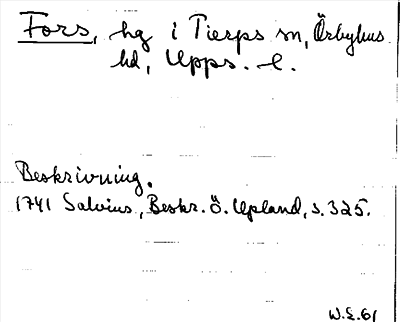 Fors, hg i Tierps sn, Örbyhus
hd, Upps. l.
Beskrivning.
1741 Salvius, Beskr. ö. Upland, s. 325.
W.E. 61